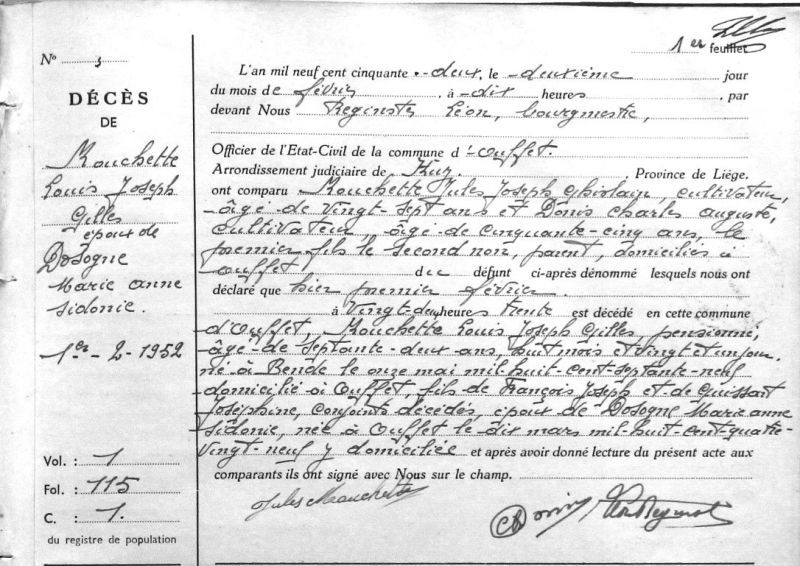 1er feuillet
N° 3
DÉCÈS
DE
Mouchette
Louis Joseph
Gilles
époux de
Dosogne
Marie anne
Sidonie.
1er - 2 - 1952
Vol. : 1
Fol. : 115
C. : 1.
du registre de population
L'an mil neuf cent cinquante -deux, le -deuxième jour
du mois de février, à -dix heures, par
devant Nous Reginster Léon, bourgmestre,
Officier de l'Etat-Civil de la commune d'-Ouffet.
Arrondissement judiciaire de Huy. Province de Liège.
ont comparu Mouchette Jules Joseph Ghislain, cultivateur,
-âgé de vingt-sept ans et Donis Charles Auguste,
cultivateur, -âgé de cinquante-cinq ans, le
premier fils le second non parent, domiciliés à
Ouffet du défunt ci-après dénommé lesquels nous ont
déclaré que hier premier février.
à Vingt-deux heures trente est décédé en cette commune
-d'Ouffet, Mouchette Louis Joseph Gilles pensionné,
-âgé de septante-deux ans, huit mois et vingt et un jour.
né à Bende le onze mai mil-huit-cent-septante-neuf
-domicilié à Ouffet, fils de François Joseph et de Guissart
Joséphine, conjoints décédés, époux de Dosogne Marie anne
Sidonie, née à Ouffet le dix mars mil-huit-cent-quatre-
vingt-neuf y domiciliée et après avoir donné lecture du présent acte aux
comparants ils ont signé avec Nous sur le champ.
Jules Mouchette